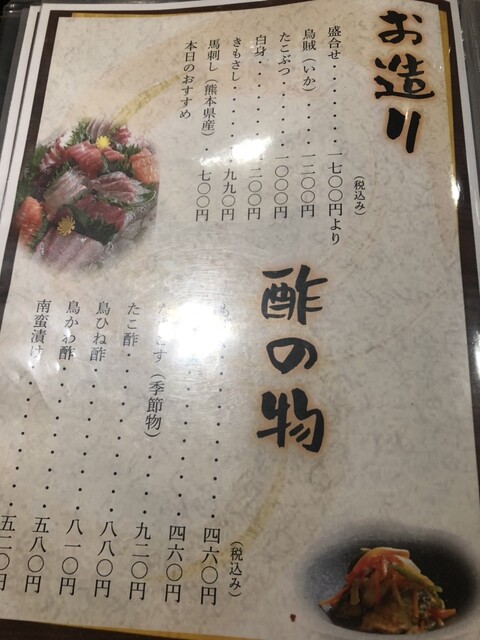 お造り
(税込み)
盛合せ・・・・・一七〇〇円より
烏賊(いか)・・・一二〇〇円
たこぶつ・・・・一〇〇〇円
白身・・・・・・一二〇〇円
きもさし・・・・・九九〇円
馬刺し(熊本県産)・一七〇〇円
本日のおすすめ
酢の物
(税込み)
も・・・・・四六〇円
こす(季節物)・・・四六〇円
たこ酢・・・・・・九二〇円
鳥ひね酢・・・・・八八〇円
鳥かわ酢・・・・・八一〇円
南蛮漬け・・・・・五八〇円
五二〇円